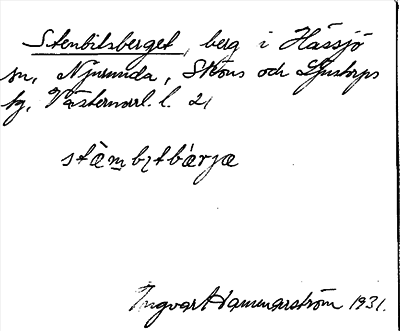 Stenbitsberget, berg i Hässjö
sn, Njurunda, Sköns och Ljustorps
tg, Västernorrl. l. 21
stæ̀mbιtbǽrjæ
Ingvar Hammarström 1931.